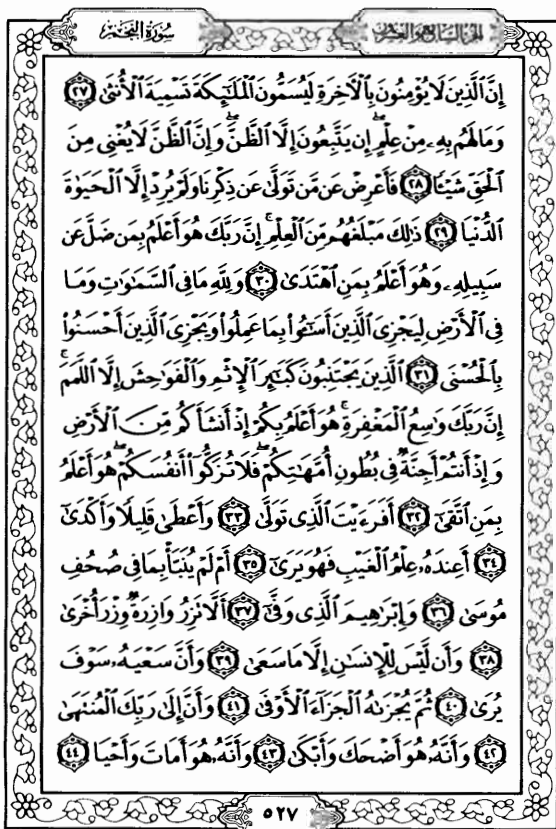 سُورَةُ النَّجْمِ الجزء السابع والعشرون
إِنَّ ٱلَّذِينَ لَا يُؤْمِنُونَ بِٱلْأٓخِرَةِ لَيُسَمُّونَ ٱلْمَلَٰٓئِكَةَ تَسْمِيَةَ ٱلْأُنثَىٰ ٢٧
وَمَا لَهُم بِهِۦ مِنْ عِلْمٍ ۖ إِن يَتَّبِعُونَ إِلَّا ٱلظَّنَّ ۖ وَإِنَّ ٱلظَّنَّ لَا يُغْنِى مِنَ
ٱلْحَقِّ شَيْـًٔا ٢٨ فَأَعْرِضْ عَن مَّن تَوَلَّىٰ عَن ذِكْرِنَا وَلَمْ يُرِدْ إِلَّا ٱلْحَيَوٰةَ
ٱلدُّنْيَا ٢٩ ذَٰلِكَ مَبْلَغُهُم مِّنَ ٱلْعِلْمِ ۚ إِنَّ رَبَّكَ هُوَ أَعْلَمُ بِمَن ضَلَّ عَن
سَبِيلِهِۦ وَهُوَ أَعْلَمُ بِمَنِ ٱهْتَدَىٰ ٣٠ وَلِلَّهِ مَا فِى ٱلسَّمَٰوَٰتِ وَمَا
فِى ٱلْأَرْضِ لِيَجْزِىَ ٱلَّذِينَ أَسَٰٓـُٔوا۟ بِمَا عَمِلُوا۟ وَيَجْزِىَ ٱلَّذِينَ أَحْسَنُوا۟
بِٱلْحُسْنَى ٣١ ٱلَّذِينَ يَجْتَنِبُونَ كَبَٰٓئِرَ ٱلْإِثْمِ وَٱلْفَوَٰحِشَ إِلَّا ٱللَّمَمَ ۚ
إِنَّ رَبَّكَ وَٰسِعُ ٱلْمَغْفِرَةِ ۚ هُوَ أَعْلَمُ بِكُمْ إِذْ أَنشَأَكُم مِّنَ ٱلْأَرْضِ
وَإِذْ أَنتُمْ أَجِنَّةٌ فِى بُطُونِ أُمَّهَٰتِكُمْ ۖ فَلَا تُزَكُّوٓا۟ أَنفُسَكُمْ ۖ هُوَ أَعْلَمُ
بِمَنِ ٱتَّقَىٰٓ ٣٢ أَفَرَءَيْتَ ٱلَّذِى تَوَلَّىٰ ٣٣ وَأَعْطَىٰ قَلِيلًا وَأَكْدَىٰٓ
٣٤ أَعِندَهُۥ عِلْمُ ٱلْغَيْبِ فَهُوَ يَرَىٰٓ ٣٥ أَمْ لَمْ يُنَبَّأْ بِمَا فِى صُحُفِ
مُوسَىٰ ٣٦ وَإِبْرَٰهِيمَ ٱلَّذِى وَفَّىٰٓ ٣٧ أَلَّا تَزِرُ وَازِرَةٌ وِزْرَ أُخْرَىٰ
٣٨ وَأَن لَّيْسَ لِلْإِنسَٰنِ إِلَّا مَا سَعَىٰ ٣٩ وَأَنَّ سَعْيَهُۥ سَوْفَ
يُرَىٰ ٤٠ ثُمَّ يُجْزَىٰهُ ٱلْجَزَآءَ ٱلْأَوْفَىٰ ٤١ وَأَنَّ إِلَىٰ رَبِّكَ ٱلْمُنتَهَىٰ
٤٢ وَأَنَّهُۥ هُوَ أَضْحَكَ وَأَبْكَىٰ ٤٣ وَأَنَّهُۥ هُوَ أَمَاتَ وَأَحْيَا ٤٤
٥٢٧